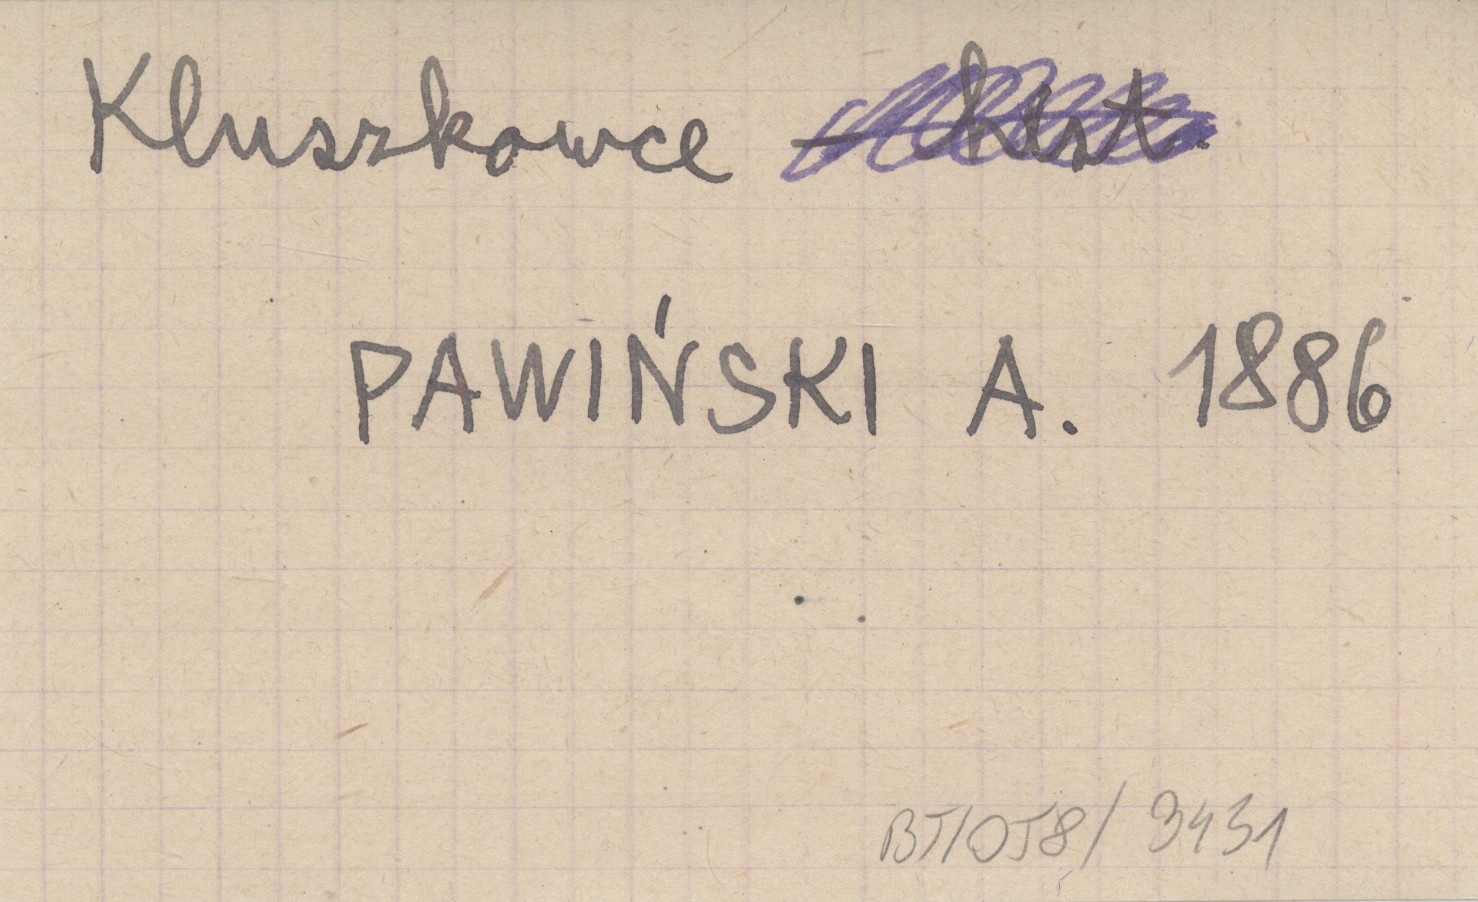 Kluszkowce - hist.
PAWIŃSKI A. 1886
BT/OJ8/3431